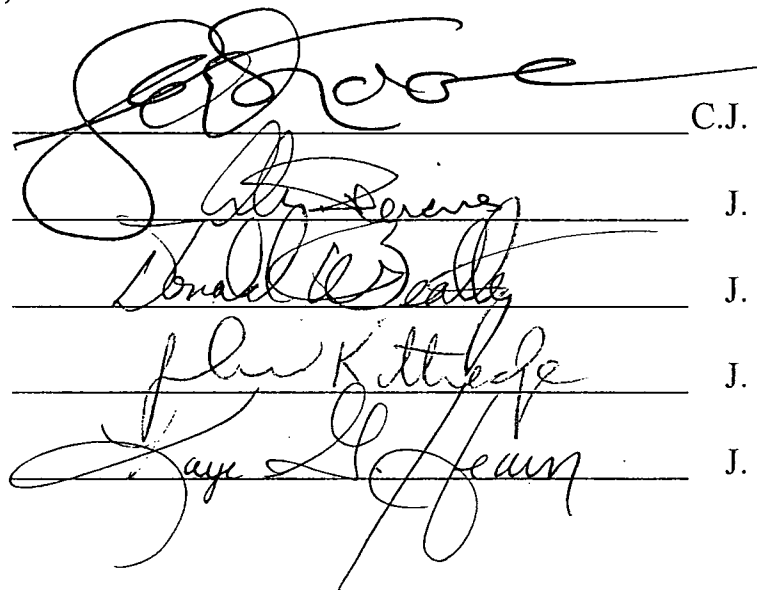 C.J.
J.
Donald W Beatty J.
John Kittredge J.
Kaye G. Hearn J.